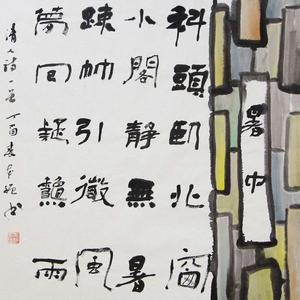 暑中
科頭臥北窗
小閣靜無暑
疎竹引微風
夢回疑聽雨
清人詩一首丁酉春